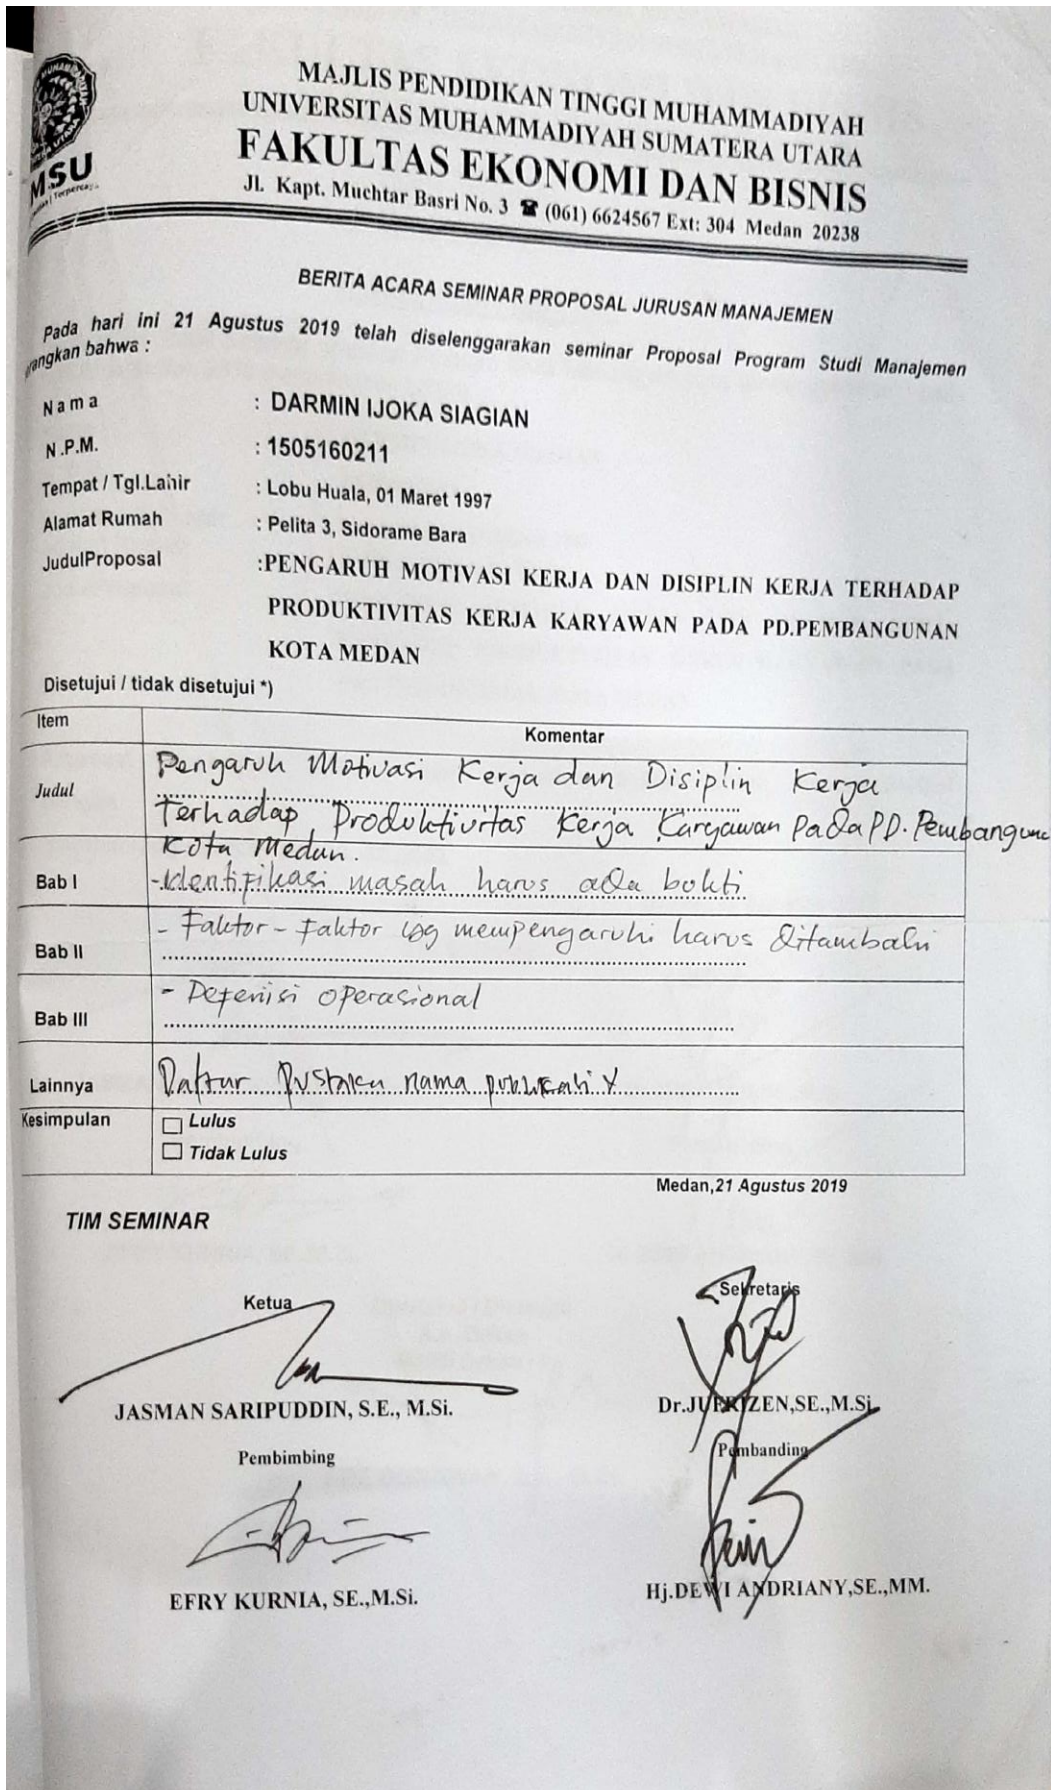 MSU
MAJLIS PENDIDIKAN TINGGI MUHAMMADIYAH
UNIVERSITAS MUHAMMADIYAH SUMATERA UTARA
FAKULTAS EKONOMI DAN BISNIS
Jl. Kapt. Muchtar Basri No. 3 ☎ (061) 6624567 Ext: 304 Medan 20238
BERITA ACARA SEMINAR PROPOSAL JURUSAN MANAJEMEN
Pada hari ini 21 Agustus 2019 telah diselenggarakan seminar Proposal Program Studi Manajemen
erangkan bahwa :
N a m a : DARMIN IJOKA SIAGIAN
N .P.M. : 1505160211
Tempat / Tgl.Lahir : Lobu Huala, 01 Maret 1997
Alamat Rumah : Pelita 3, Sidorame Bara
JudulProposal :PENGARUH MOTIVASI KERJA DAN DISIPLIN KERJA TERHADAP
PRODUKTIVITAS KERJA KARYAWAN PADA PD.PEMBANGUNAN
KOTA MEDAN
Disetujui / tidak disetujui *)
Item Komentar
Judul Pengaruh Motivasi Kerja dan Disiplin Kerja
Terhadap Produktivitas Kerja Karyawan Pada PD. Pembangunan
Kota Medan.
Bab I -Identifikasi masah harus ada bukti
Bab II - Faktor - Faktor yg mempengaruhi harus ditambahi
Bab III - Defenisi operasional
Lainnya Daftar Pustaka nama
Kesimpulan ☐ Lulus
☐ Tidak Lulus
Medan,21 Agustus 2019
TIM SEMINAR
Ketua Sekretaris
JASMAN SARIPUDDIN, S.E., M.Si. Dr.JUFRIZEN,SE.,M.Si
Pembimbing Pembanding
EFRY KURNIA, SE.,M.Si. Hj.DEWI ANDRIANY,SE.,MM.